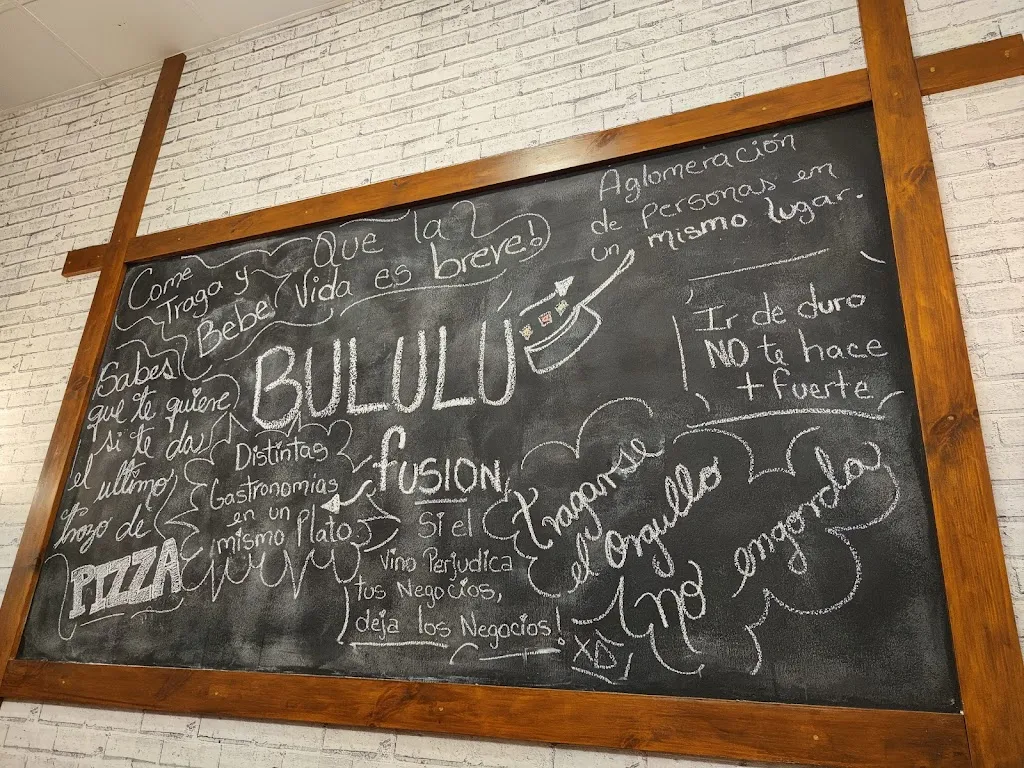 Come
Traga y
Bebe
Que la
Vida es breve!
Aglomeración
de Personas en
un mismo lugar.
BULULÚ
Ir de duro
NO te hace
+ fuerte
Sabes
que te quiere
si te da
el ultimo
trozo de
PIZZA
Distintas
Gastronomias
en un
mismo Plato
fusion
Si el
vino Perjudica
tus Negocios,
deja los Negocios!
tragarse
el orgullo
no engorda
XD